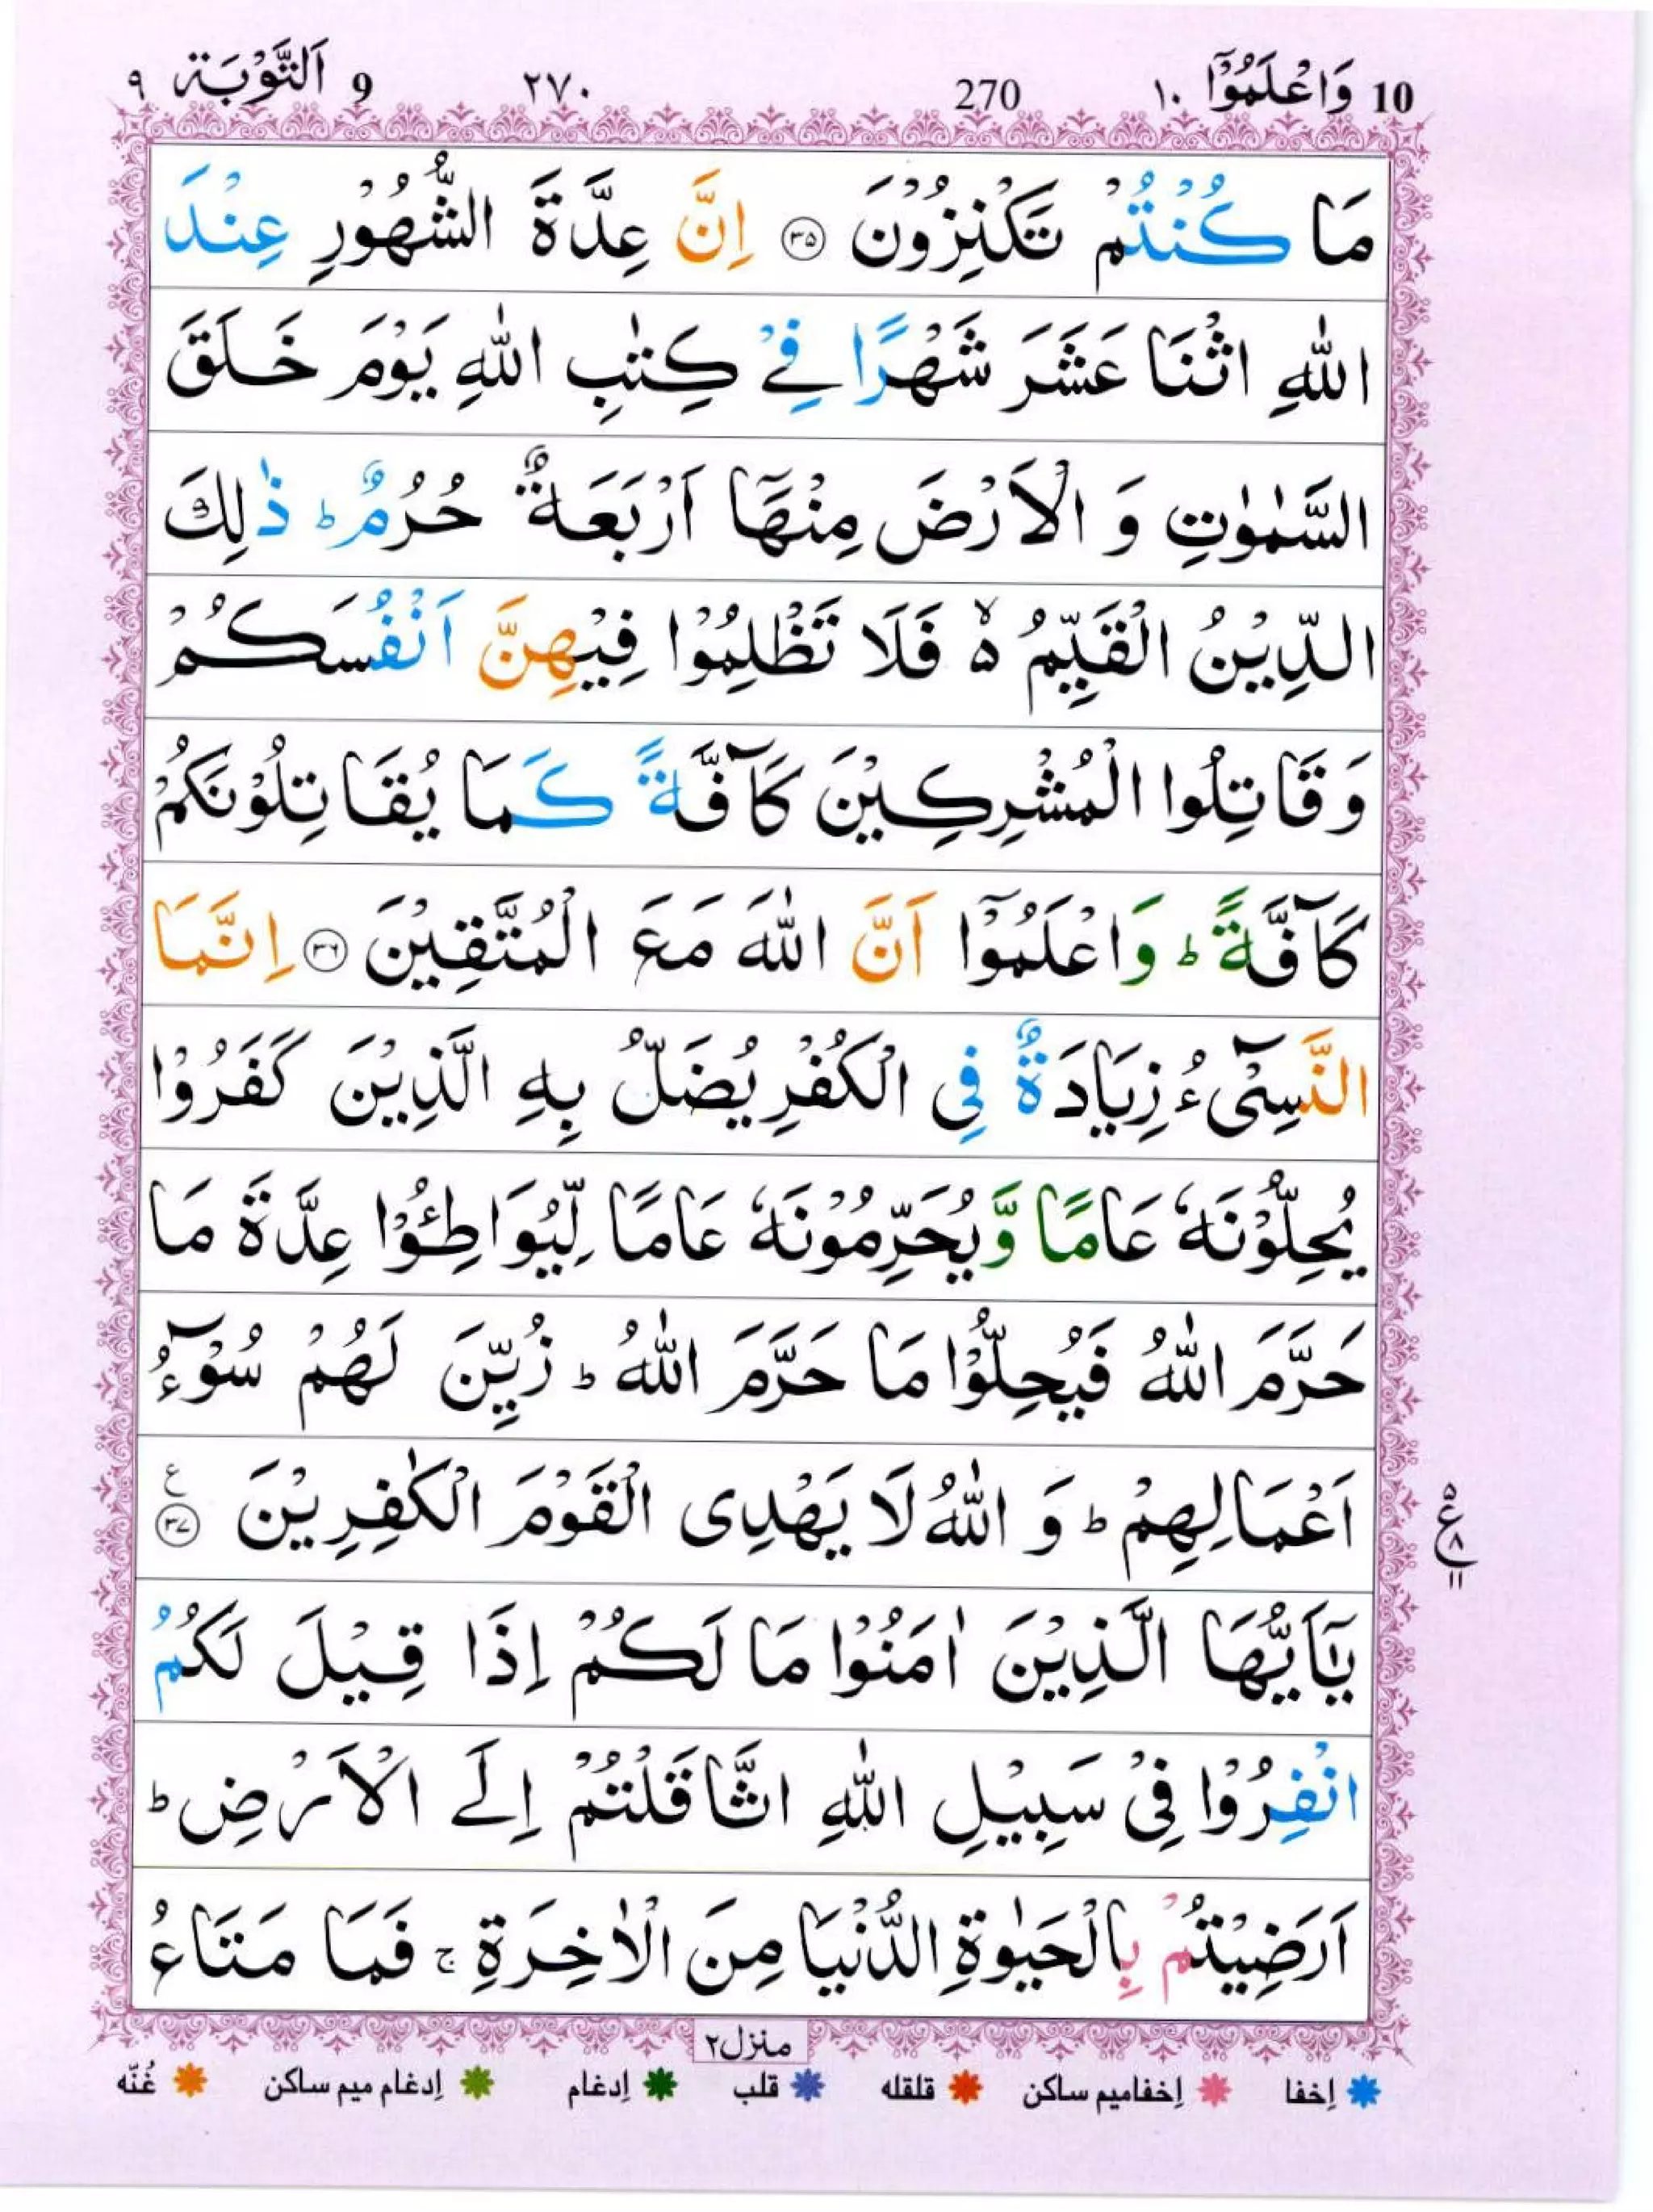 10 وَاعْلَمُوْٓا ١٠ 270 ٢٧٠ 9 اَلتَّوْبَة ٩
مَا كُنْتُمْ تَكْنِزُوْنَ ﴿۳۵﴾ اِنَّ عِدَّةَ الشُّهُوْرِ عِنْدَ
اللّٰهِ اثْنَا عَشَرَ شَهْرًا فِیْ كِتٰبِ اللّٰهِ يَوْمَ خَلَقَ
السَّمٰوٰتِ وَ الْاَرْضَ مِنْهَآ اَرْبَعَةٌ حُرُمٌ ؕ ذٰلِكَ
الدِّيْنُ الْقَيِّمُ ۙ۬ فَلَا تَظْلِمُوْا فِيْهِنَّ اَنْفُسَكُمْ
وَقَاتِلُوا الْمُشْرِكِيْنَ كَآفَّةً كَمَا يُقَاتِلُوْنَكُمْ
كَآفَّةً ؕ وَاعْلَمُوْٓا اَنَّ اللّٰهَ مَعَ الْمُتَّقِيْنَ ﴿۳۶﴾ اِنَّمَا
النَّسِیْٓءُ زِيَادَةٌ فِی الْكُفْرِ يُضَلُّ بِهِ الَّذِيْنَ كَفَرُوْا
يُحِلُّوْنَهٗ عَامًا وَّيُحَرِّمُوْنَهٗ عَامًا لِّيُوَاطِـُٔوْا عِدَّةَ مَا
حَرَّمَ اللّٰهُ فَيُحِلُّوْا مَا حَرَّمَ اللّٰهُ ؕ زُيِّنَ لَهُمْ سُوْٓءُ
اَعْمَالِهِمْ ؕ وَ اللّٰهُ لَا يَهْدِی الْقَوْمَ الْكٰفِرِيْنَ ﴿۳۷﴾ ع
۵ ع ٨ ١١
يٰٓاَيُّهَا الَّذِيْنَ اٰمَنُوْا مَا لَكُمْ اِذَا قِيْلَ لَكُمُ
انْفِرُوْا فِیْ سَبِيْلِ اللّٰهِ اثَّاقَلْتُمْ اِلَى الْاَرْضِ ؕ
اَرَضِيْتُمْ بِالْحَيٰوةِ الدُّنْيَا مِنَ الْاٰخِرَةِ ۚ فَمَا مَتَاعُ
منزل٢
إخفا إخفاميم ساكن قلقله قلب إدغام إدغام ميم ساكن غُنّه